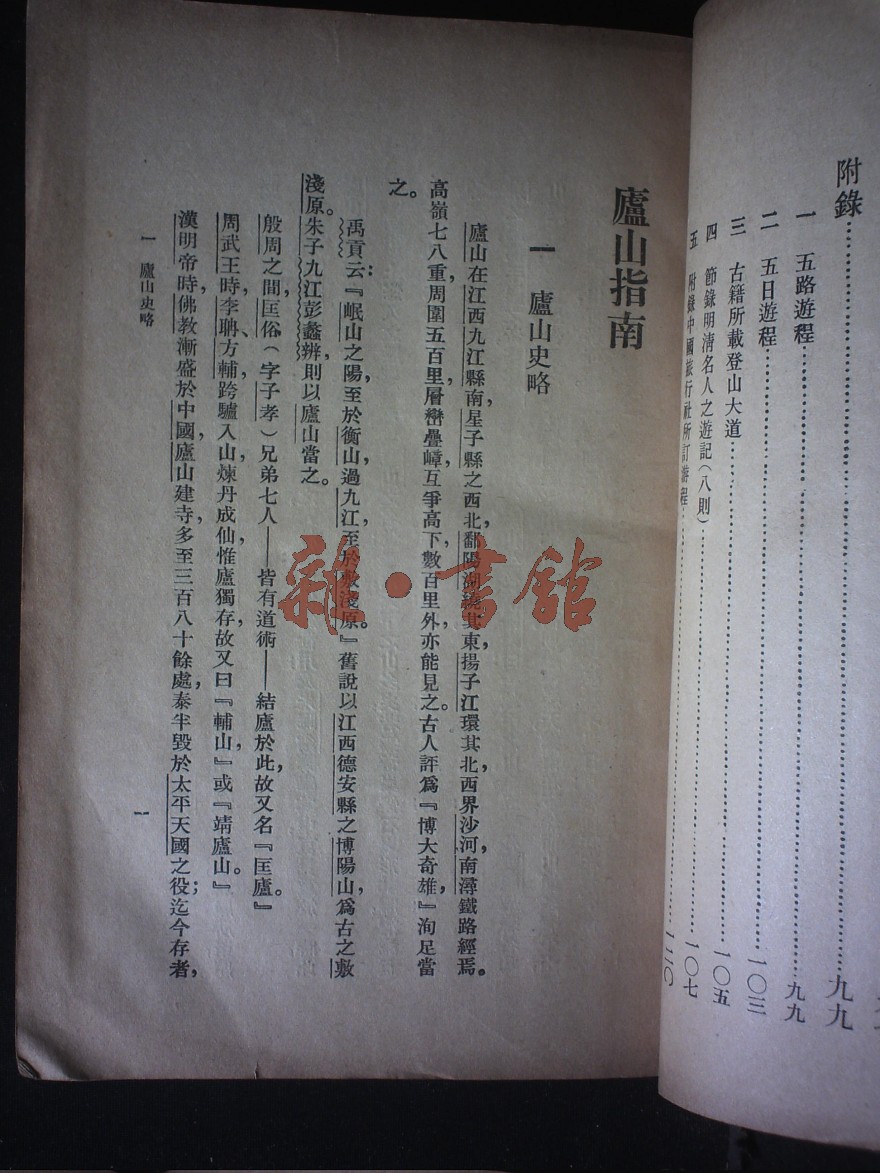 附錄……九九
一　五路遊程……九九
二　五日遊程……一〇三
三　古籍所載登山大道……一〇五
四　節錄明清名人之遊記（八則）……一〇七
五　附錄中國旅行社所訂游程……一二〇
廬山指南
一　廬山史略
廬山在江西九江縣南，星子縣之西北，鄱陽湖繞其東，揚子江環其北，西界沙河，南潯鐵路經焉。
高嶺七八重，周圍五百里，層巒疊嶂，互爭高下，數百里外，亦能見之。古人評爲『博大奇雄，』洵足當
之。
禹貢云：『岷山之陽，至於衡山，過九江，至於敷淺原。』舊說以江西德安縣之博陽山，爲古之敷
淺原。朱子九江彭蠡辨，則以廬山當之。
殷周之間，匡俗（字子孝）兄弟七人——皆有道術——結廬於此，故又名『匡廬。』
周武王時，李聃、方輔跨驢入山，煉丹成仙，惟廬獨存，故又曰『輔山，』或『靖廬山。』
漢明帝時，佛教漸盛於中國，廬山建寺，多至三百八十餘處，泰半毀於太平天國之役；迄今存者，
一　廬山史略
一
雜·書館